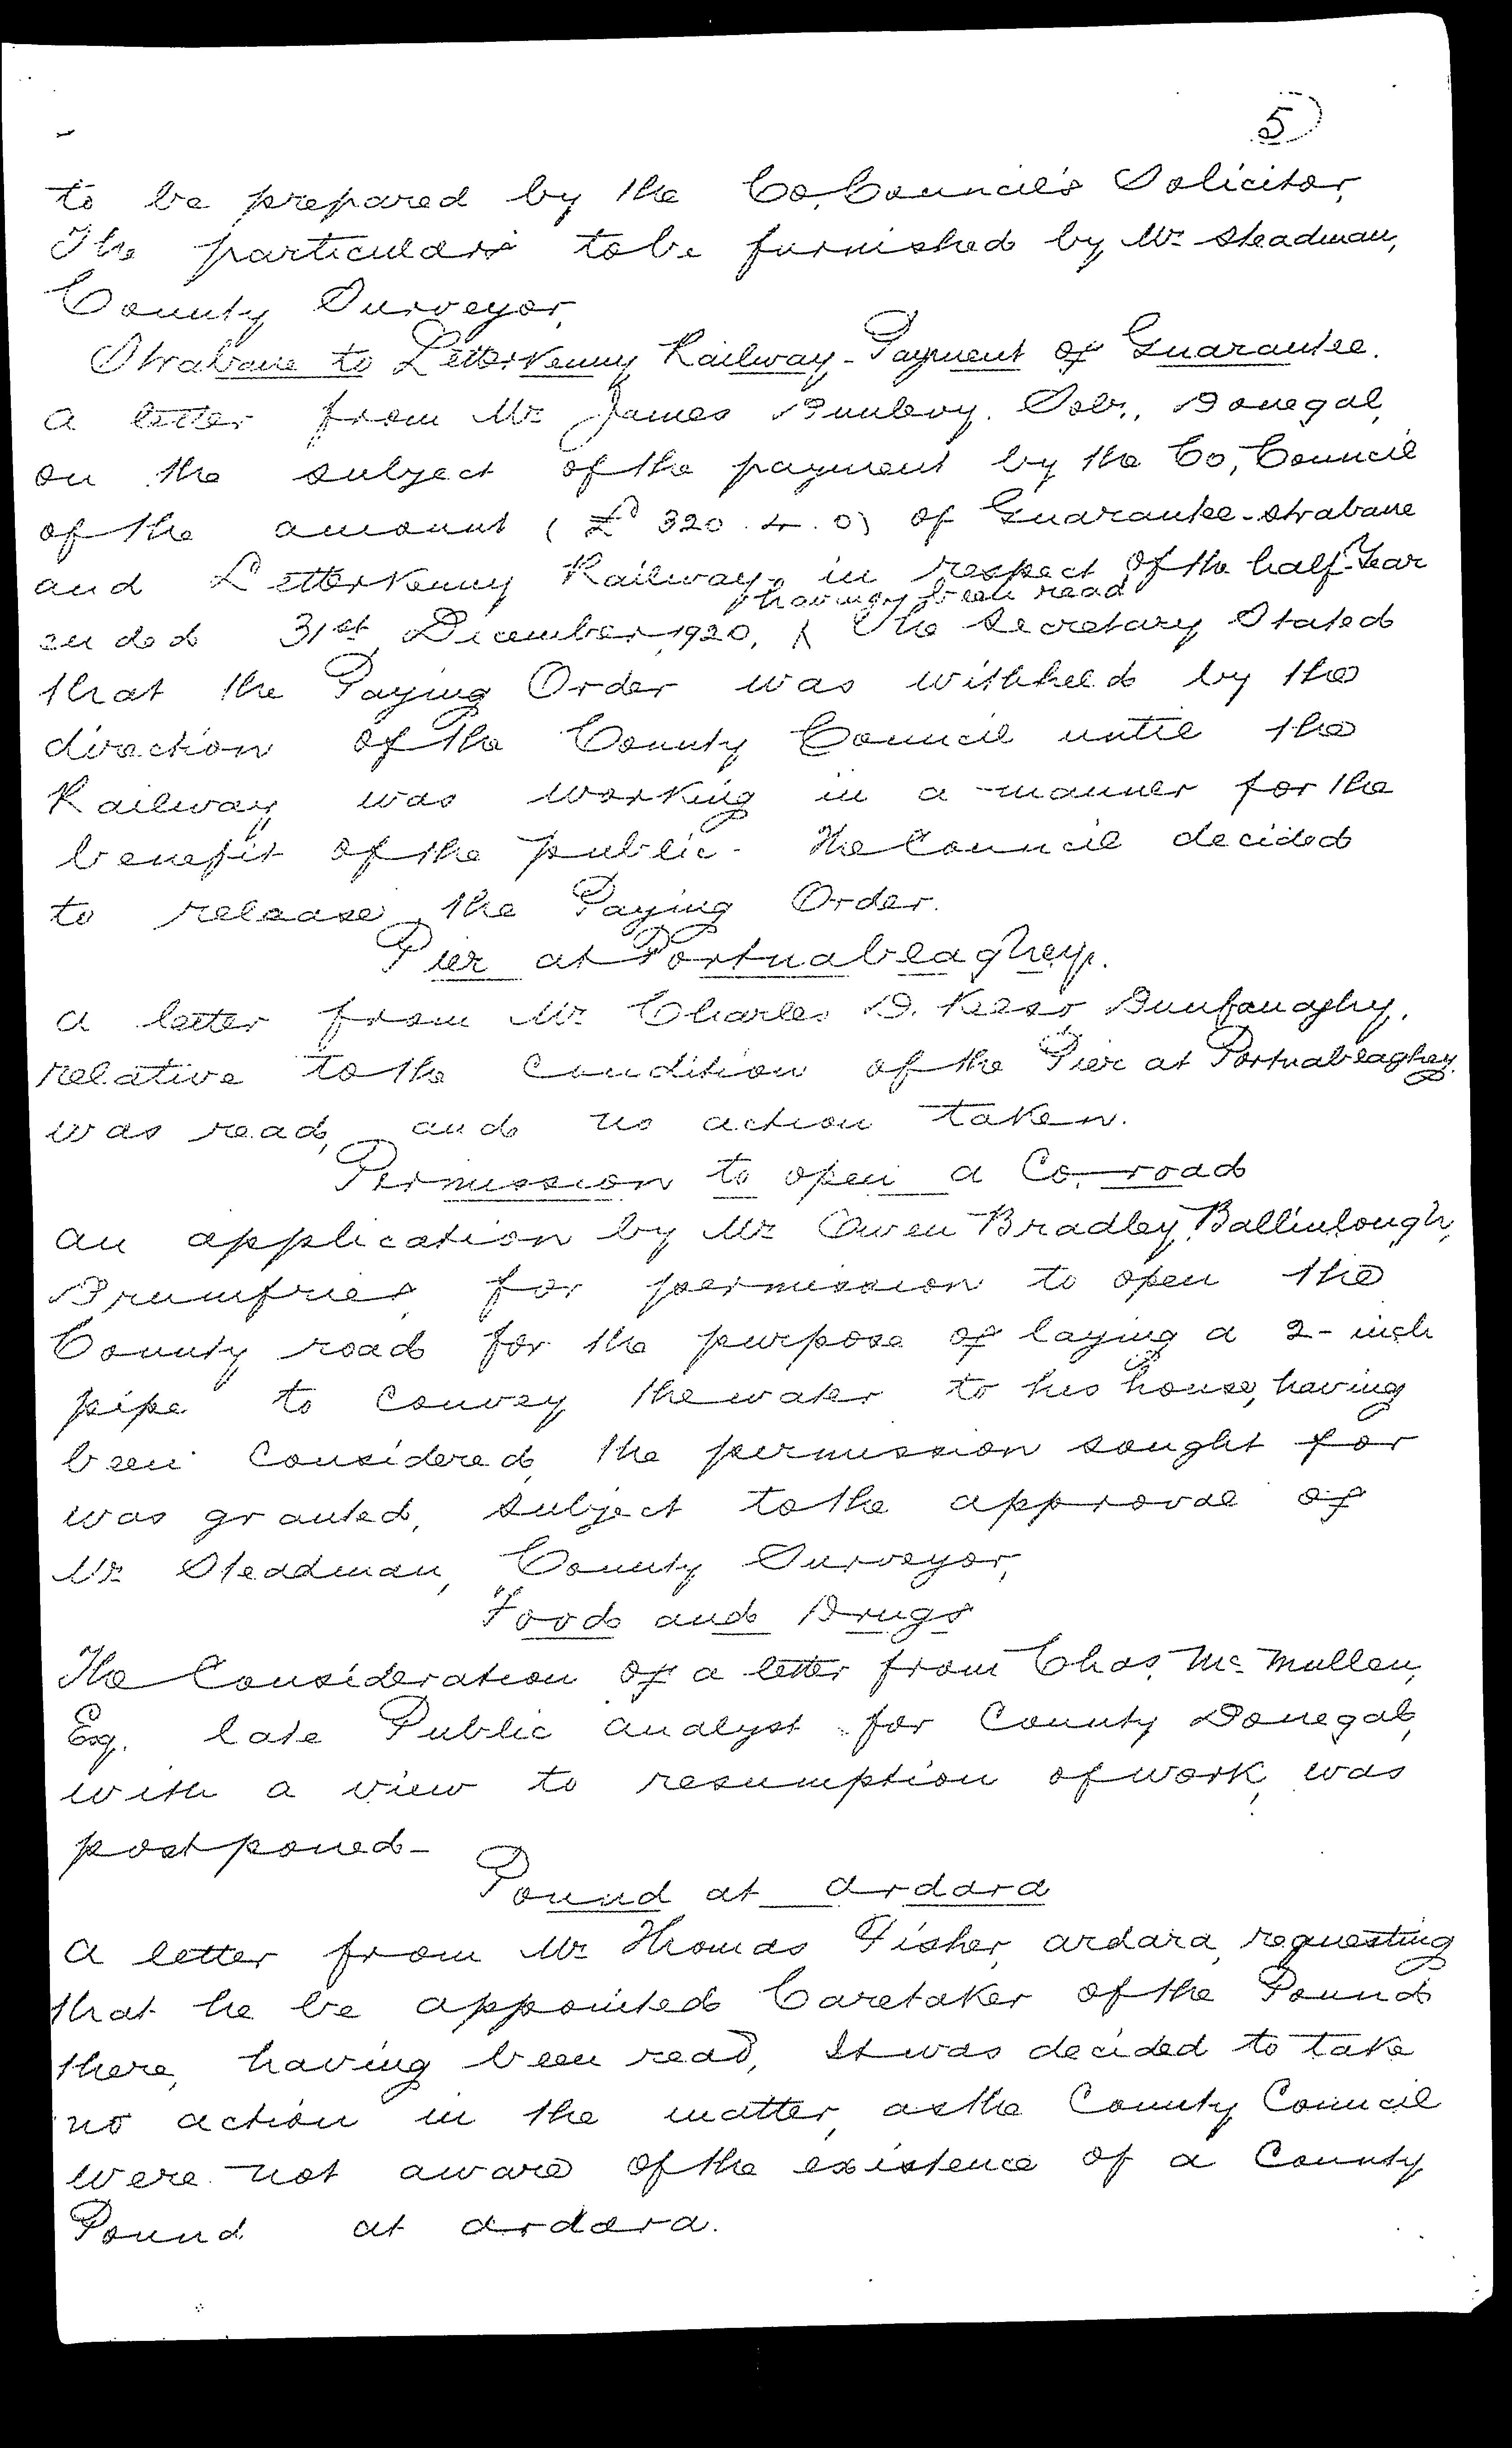 5
to be prepared by the Co. Council's Solicitor,
The particulars to be furnished by Mr Steadman,
County Surveyor,
Strabane to Letterkenny Railway - Payment of Guarantee.
A letter from Mr James Dunlevy. Solr., Donegal,
on the subject of the payment by the Co, Council
of the amount ( £ 320. 4. 0) of Guarantee - Strabane
and Letterkenny Railway, in respect of the half-Year
having been read
ended 31st December, 1920, ⁁ The Secretary Stated
that the Paying Order was withheld by the
direction of the County Council until the
Railway was working in a manner for the
benefit of the public. The Council decided
to release the Paying Order.
Pier at Portnableaghey.
A letter from Mr Charles D. Kerr Dunfanaghy,
relative to the Condition of the Pier at Portnableaghey.
was read, and no action taken.
Permission to open a Co. road
An application by Mr Owen Bradley, Ballinlough,
Drumfries, for permission to open the
County road for the purpose of laying a 2-inch
pipe to Convey the water to his house, having
been Considered, the permission sought for
was granted, subject to the approval of
Mr Steadman, County Surveyor,
Food and Drugs
The Consideration of a letter from Chas. McMullen,
Esq. late Public Analyst for County Donegal,
with a view to resumption of work, was
postponed -
Pound at Ardara
A letter from Mr Thomas Fisher, Ardara, requesting
that he be appointed Caretaker of the Pound
there, having been read, It was decided to take
no action in the matter, as the County Council
were not aware of the existence of a County
Pound at Ardara.